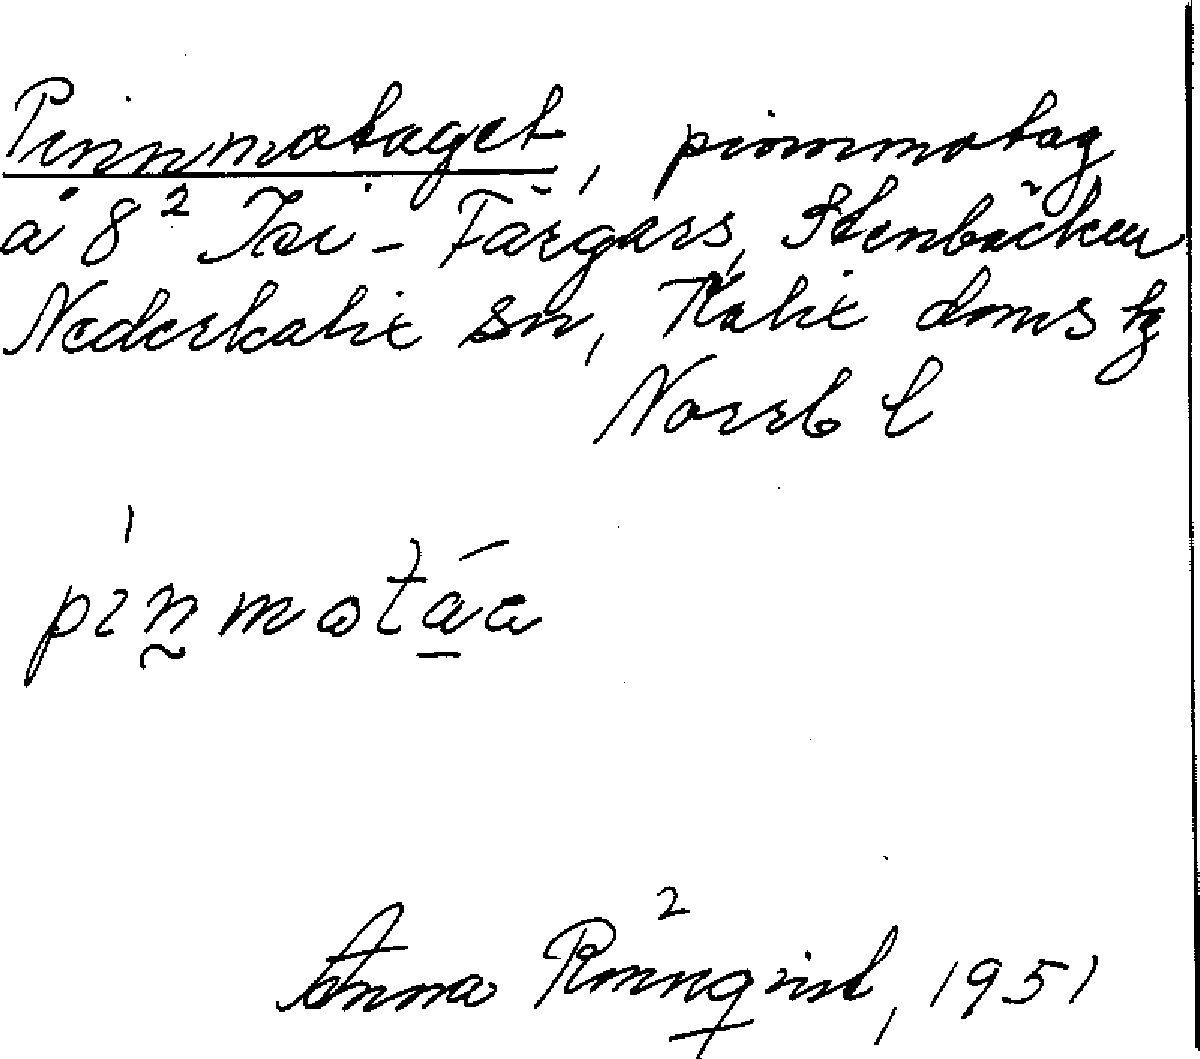 Pinnmotaget, pinnmotag
å 8² Isi - Färgars, Stenbäcken
Nederkalix sn, Kalix doms tg
Norrb l
pinmotáa
Anna Rönnqvist, 1951